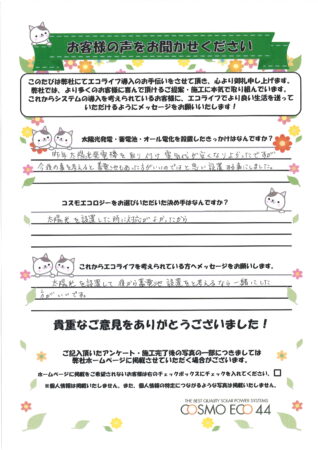 お客様の声をお聞かせください
このたびは弊社にてエコライフ導入のお手伝いをさせて頂き、心より御礼申し上げます。
弊社では、より多くのお客様に喜んで頂けるご提案・施工に本気で取り組んでいます。
これからシステムの導入を考えられているお客様に、エコライフでより良い生活を送って
いただけるようにメッセージをお願いします！
太陽光発電・蓄電池・オール電化を設置したきっかけはなんですか？
昨年太陽光発電機を取り付け 電気代が安くなりよかったですが
今後の事を考えると蓄電池もあった方がいいのではと思い設置
コスモエコロジーをお選びいただいた決め手はなんですか？
太陽光を設置した時に対応がよかったから
これからエコライフを考えられている方へメッセージをお願いします。
太陽光を設置して後から蓄電池設置をと考えるなら一緒にした
方がいいです。
貴重なご意見をありがとうございました！
ご記入頂いたアンケート・施工完了後の写真の一部につきましては
弊社ホームページに掲載させていただく場合がございます。
ホームページに掲載をご希望されないお客様は右のチェックボックスにチェックを入れてください。
※個人情報は掲載いたしません、また、個人情報の特定につながるような写真は掲載いたしません。
THE BEST QUALITY SOLAR POWER SYSTEMS
COSMO ECO 44